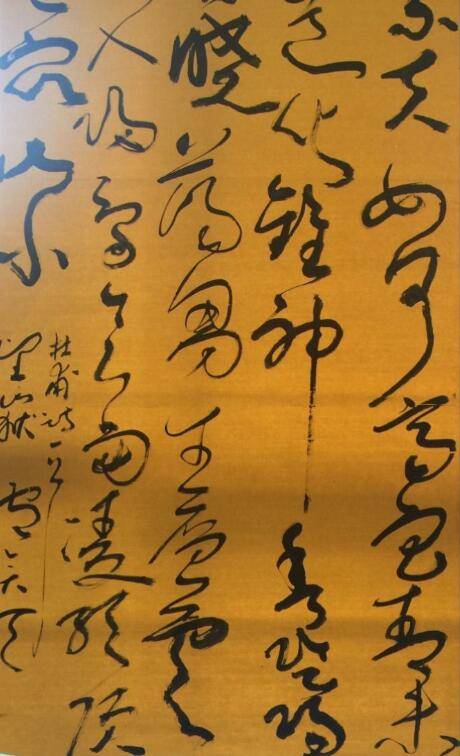 宗夫如何齊魯青未
造化鍾神秀陰陽
曉蕩胸生層雲
入歸鳥會當凌絕頂
眾山小
杜甫詩一首
望嶽